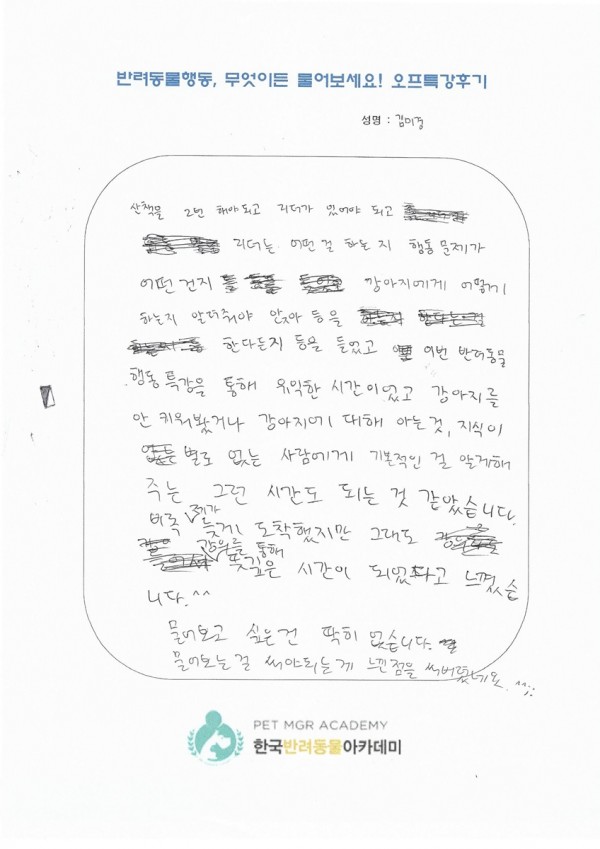 반려동물행동, 무엇이든 물어보세요! 오프특강후기
성명 : 김미경
산책을 2번 해야되고 리더가 있어야 되고
리더는 어떤걸 하는지 행동문제가
어떤건지 강아지에게 어떻게
하는지 알려줘야 앉아 등을
한다든지 등을 들었고 이번 반려동물
행동 특강을 통해 유익한 시간이었고 강아지를
안 키워봤거나 강아지에 대해 아는것, 지식이
별로 없는 사람에게 기본적인 걸 알게해
주는 그런 시간도 되는 것 같았습니다.
비록 제가 늦게 도착했지만 그래도
강의를 통해 뜻깊은 시간이 되었다고 느꼈습
니다.^^
물어보고 싶은건 딱히 없습니다.
물어보는걸 써야되는게 느낀점을 써버렸네요. ^^;;
PET MGR ACADEMY
한국반려동물아카데미